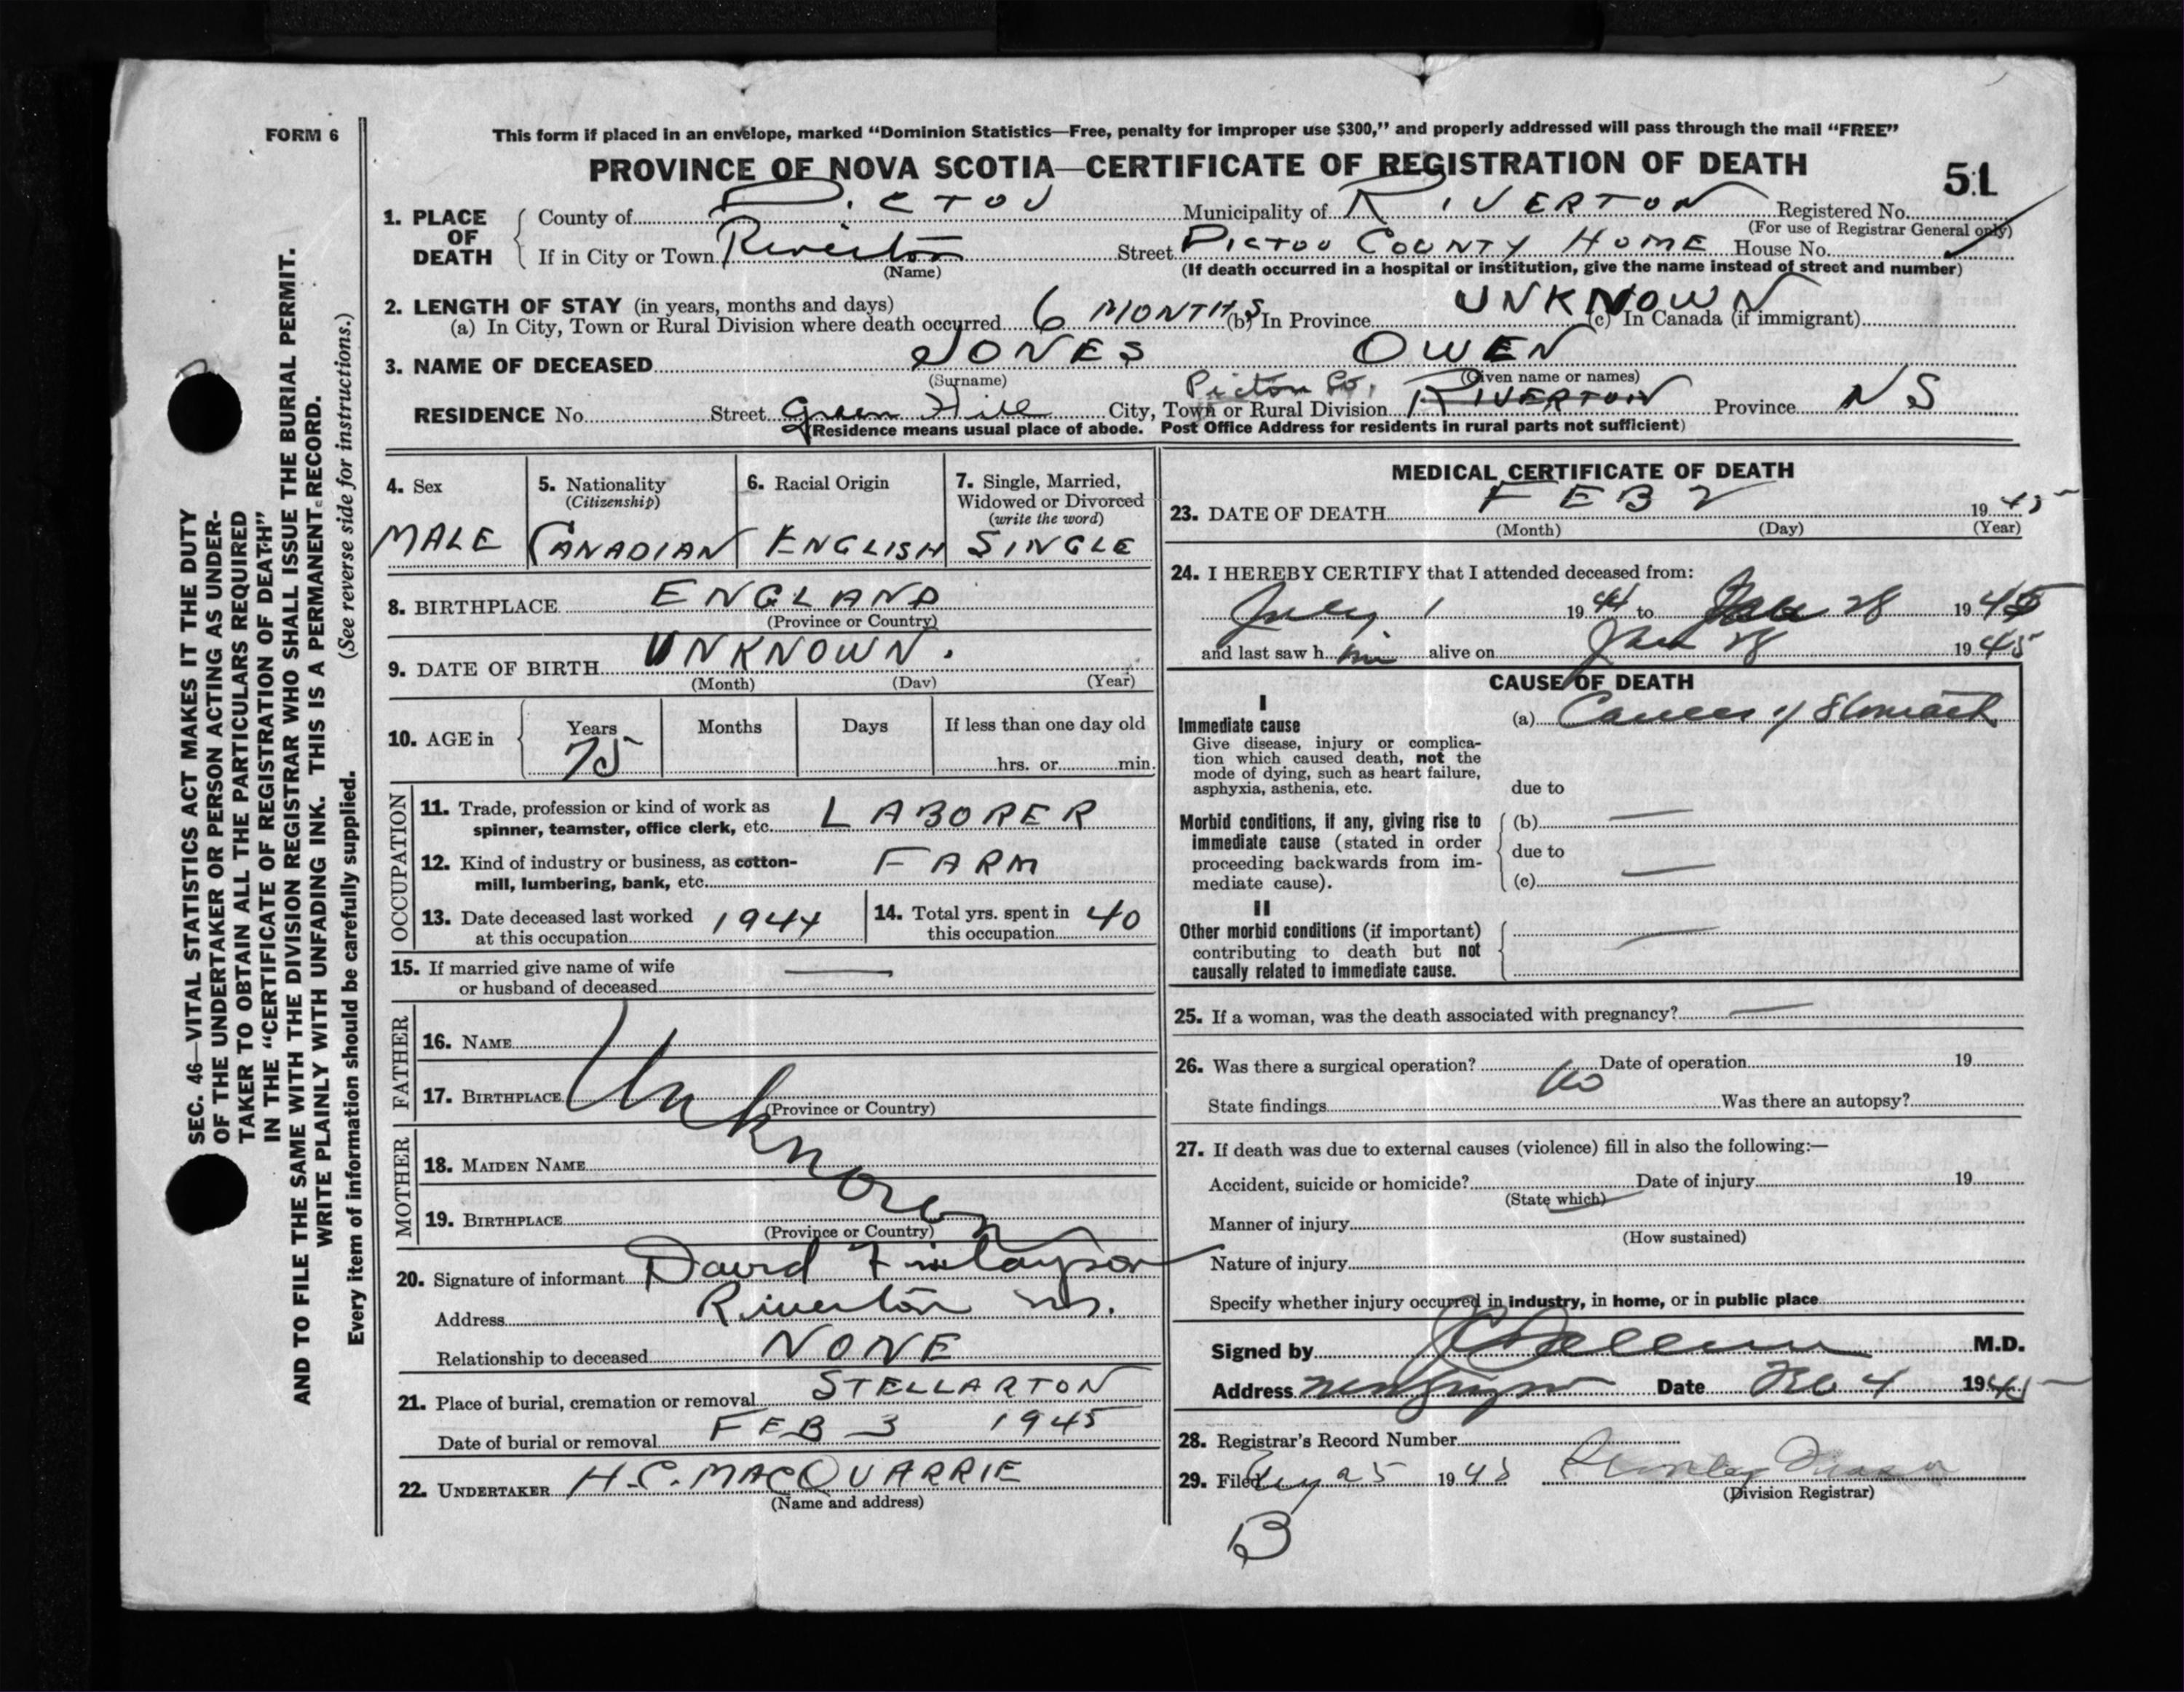 FORM 6
This form if placed in an envelope, marked “Dominion Statistics—Free, penalty for improper use $300,” and properly addressed will pass through the mail “FREE”
PROVINCE OF NOVA SCOTIA—CERTIFICATE OF REGISTRATION OF DEATH
51
1. PLACE OF DEATH
County of PICTOU Municipality of RIVERTON Registered No.
(For use of Registrar General only)
If in City or Town Riverton Street PICTOU COUNTY HOME House No.
(Name) (If death occurred in a hospital or institution, give the name instead of street and number)
2. LENGTH OF STAY (in years, months and days)
(a) In City, Town or Rural Division where death occurred 6 MONTHS (b) In Province UNKNOWN (c) In Canada (if immigrant)
3. NAME OF DECEASED JONES OWEN
(Surname) (Given name or names)
Pictou Co.
RESIDENCE No. Street Green Hill City, Town or Rural Division RIVERTON Province N S
(Residence means usual place of abode. Post Office Address for residents in rural parts not sufficient)
4. Sex
MALE
5. Nationality
(Citizenship)
CANADIAN
6. Racial Origin
ENGLISH
7. Single, Married,
Widowed or Divorced
(write the word)
SINGLE
8. BIRTHPLACE ENGLAND
(Province or Country)
9. DATE OF BIRTH UNKNOWN.
(Month) (Day) (Year)
10. AGE in Years Months Days If less than one day old
75 hrs. or min.
OCCUPATION
11. Trade, profession or kind of work as
spinner, teamster, office clerk, etc. LABORER
12. Kind of industry or business, as cotton-
mill, lumbering, bank, etc. FARM
13. Date deceased last worked
at this occupation 1944
14. Total yrs. spent in
this occupation 40
15. If married give name of wife
or husband of deceased —
FATHER
16. NAME
17. BIRTHPLACE
(Province or Country)
Unknown
MOTHER
18. MAIDEN NAME
19. BIRTHPLACE
(Province or Country)
20. Signature of informant David Finlayson
Address Riverton N.S.
Relationship to deceased NONE
21. Place of burial, cremation or removal STELLARTON
Date of burial or removal FEB 3 1945
22. UNDERTAKER H.C. MACQUARRIE
(Name and address)
MEDICAL CERTIFICATE OF DEATH
23. DATE OF DEATH FEB 2 1945
(Month) (Day) (Year)
24. I HEREBY CERTIFY that I attended deceased from:
July 1 1944 to Jan 28 1945
and last saw him alive on Jan 28 1945
CAUSE OF DEATH
I
Immediate cause
Give disease, injury or complica-
tion which caused death, not the
mode of dying, such as heart failure,
asphyxia, asthenia, etc.
(a) Cancer of Stomach
due to
Morbid conditions, if any, giving rise to
immediate cause (stated in order
proceeding backwards from im-
mediate cause).
(b) —
due to
(c) —
II
Other morbid conditions (if important)
contributing to death but not
causally related to immediate cause.
—
25. If a woman, was the death associated with pregnancy? —
26. Was there a surgical operation? no Date of operation 19
State findings Was there an autopsy?
27. If death was due to external causes (violence) fill in also the following:—
Accident, suicide or homicide? Date of injury 19
(State which)
Manner of injury
(How sustained)
Nature of injury
Specify whether injury occurred in industry, in home, or in public place
Signed by M.D.
Address New Glasgow Date Feb 4 1945
28. Registrar's Record Number
29. Filed 25 1945
(Division Registrar)
B
SEC. 46—VITAL STATISTICS ACT MAKES IT THE DUTY
OF THE UNDERTAKER OR PERSON ACTING AS UNDER-
TAKER TO OBTAIN ALL THE PARTICULARS REQUIRED
IN THE “CERTIFICATE OF REGISTRATION OF DEATH”
AND TO FILE THE SAME WITH THE DIVISION REGISTRAR WHO SHALL ISSUE THE BURIAL PERMIT.
WRITE PLAINLY WITH UNFADING INK. THIS IS A PERMANENT RECORD.
Every item of information should be carefully supplied. (See reverse side for instructions.)